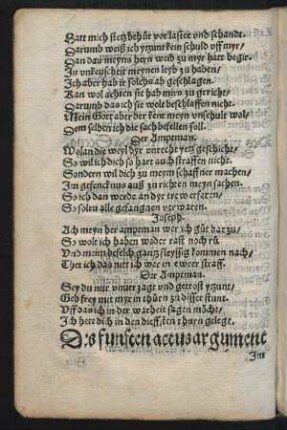 Hatt mich stetz behüt vor laster und schandt.
Darumb weiß ich ytzunt kein schuld uff myr/
Dan das meyns hern weib zu myr hatt begir
In unkeuscheit meynen leyb zu haben/
Ich aber hab ir solchs ab geschlagen.
Kan wol achten sie hab mirs zu gericht/
Darumb das ich sie wolt beschlaffen nicht.
Mein Gott aber der kent meyn unschult wol/
Dem selben ich die sach befellen soll.
Der Amptman.
Wolan die weyl dyr unrecht ytzt geschicht/
So wil ich dich so hart auch straffen nicht.
Sondern wil dich zu meym schaffner machen/
Im gefencknus auß zu richten meyn sachen.
So ich dan werde an dyr trew erfaren/
So soltu alle gefangnen verwaren.
Joseph.
Ach meyn her amptman wer ich gut darzu/
So wolt ich haben weder rast noch ru
Und meim befelch gantz fleyssig kommen nach/
Thet ich das nit ich wer in ewer straff.
Der Amptman.
Sey du nur unverzagt und getrost ytzunt.
Geh frey mit myr in thürn zu disser stunt.
Uff das ich in der warheit sagen möcht/
Ich hett dich in den dieffsten thurn gelegt.
Des funften actus argument
Im